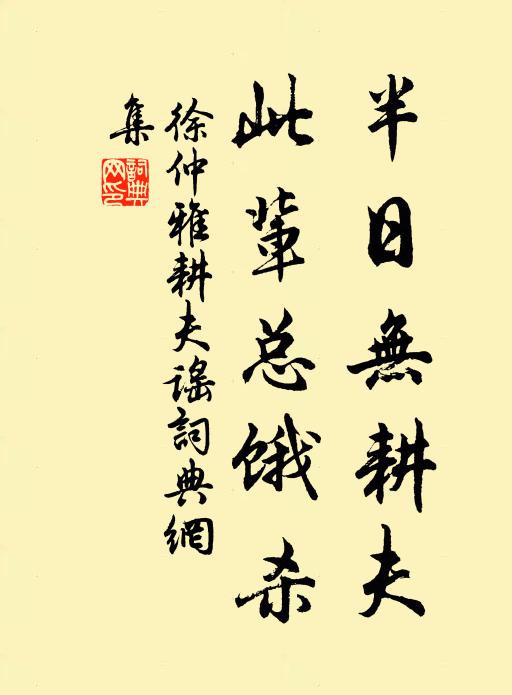 半日無耕夫
此輩总饿杀
徐仲雅耕夫谣詞典網
集
詞典网印